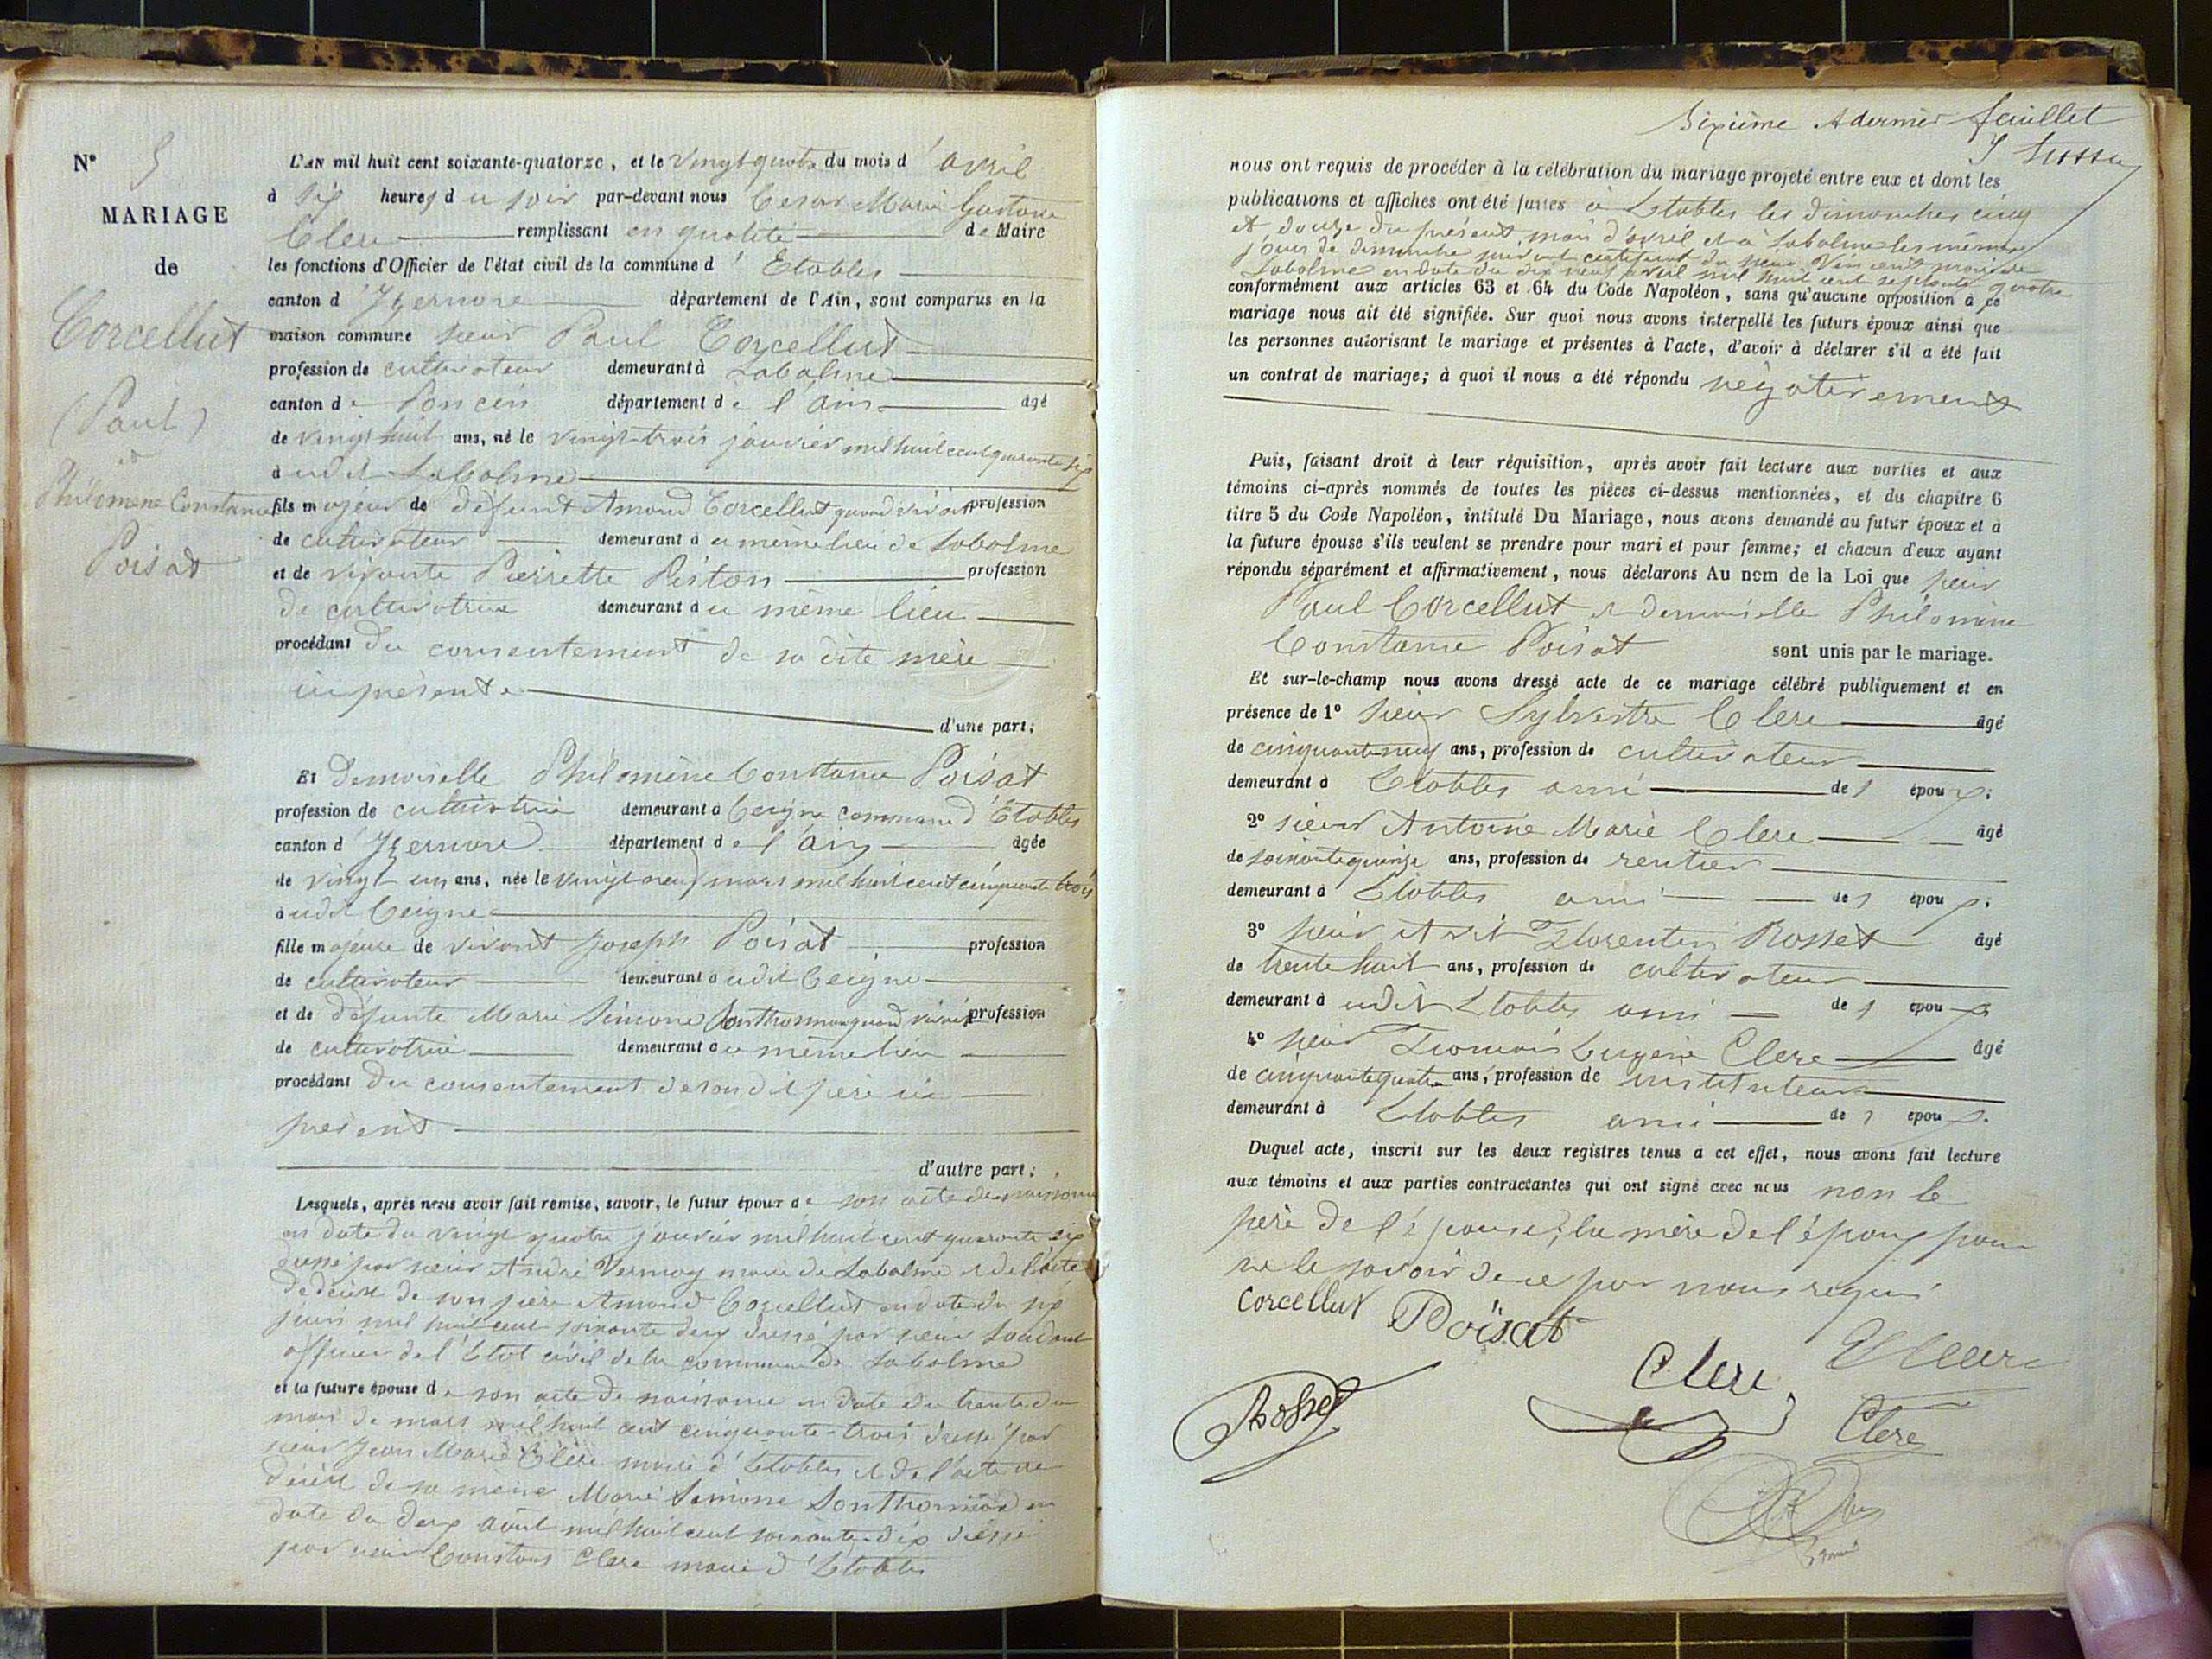 N° 5
MARIAGE
de
Corcellut
(Paul)
et
Philomène Constance
Poisat
L'AN mil huit cent soixante-quatorze, et le vingt quatre du mois d'avril
à six heures du soir par-devant nous Cesar Marie Gustave
Clerc remplissant en qualité de Maire
les fonctions d'Officier de l'état civil de la commune d'Etables
canton d'Izernore département de l'Ain, sont comparus en la
maison commune sieur Paul Corcellut
profession de cultivateur demeurant à Labalme
canton de Poncin département de l'Ain âgé
de vingt huit ans, né le vingt-trois janvier mil huit cent quarante six
audit Labalme
fils majeur de défunt Amand Corcellut quand vivait profession
de cultivateur demeurant au même lieu de Labalme
et de vivante Pierrette Piston profession
de cultivatrice demeurant au même lieu
procédant du consentement de sa dite mère
ici présente
d'une part;
Et demoiselle Philomène Constance Poisat
profession de cultivatrice demeurant à Ceigne commune d'Etables
canton d'Izernore département de l'Ain âgée
de vingt un ans, née le vingt neuf mars mil huit cent cinquante trois
audit Ceigne
fille majeure de vivant Joseph Poisat profession
de cultivateur demeurant audit Ceigne
et de défunte Marie Simone Sonthonnax quand vivait profession
de cultivatrice demeurant au même lieu
procédant du consentement de son dit père ici
présent
d'autre part;
Lesquels, après nous avoir fait remise, savoir, le futur époux de son acte de naissance
en date du vingt quatre janvier mil huit cent quarante six
dressé par sieur André Vermay maire de Labalme et de l'acte
de décès de son père Amand Corcellut en date du six
juin mil huit cent soixante deux dressé par sieur
officier de l'Etat civil de la commune de Labalme
et la future épouse de son acte de naissance en date du trente du
mois de mars mil huit cent cinquante-trois dressé par
sieur Jean Marie Clerc maire d'Etables et de l'acte de
décès de sa mère Marie Simone Sonthonnax en
date du deux août mil huit cent soixante-dix dressé
par sieur Constant Clerc maire d'Etables
Sixième et dernier feuillet
nous ont requis de procéder à la célébration du mariage projeté entre eux et dont les
publications et affiches ont été faites à Etables les dimanches cinq
et douze du présent mois d'avril et à Labalme les mêmes
jours de dimanche suivant certificat du sieur maire de
Labalme en date du dix neuf avril mil huit cent septante quatre
conformément aux articles 63 et 64 du Code Napoléon, sans qu'aucune opposition à ce
mariage nous ait été signifiée. Sur quoi nous avons interpellé les futurs époux ainsi que
les personnes autorisant le mariage et présentes à l'acte, d'avoir à déclarer s'il a été fait
un contrat de mariage; à quoi il nous a été répondu négativement
Puis, faisant droit à leur réquisition, après avoir fait lecture aux parties et aux
témoins ci-après nommés de toutes les pièces ci-dessus mentionnées, et du chapitre 6
titre 5 du Code Napoléon, intitulé Du Mariage, nous avons demandé au futur époux et à
la future épouse s'ils veulent se prendre pour mari et pour femme; et chacun d'eux ayant
répondu séparément et affirmativement, nous déclarons Au nom de la Loi que sieur
Paul Corcellut et demoiselle Philomène
Constance Poisat sont unis par le mariage.
Et sur-le-champ nous avons dressé acte de ce mariage célébré publiquement et en
présence de 1° sieur Sylvestre Clerc âgé
de cinquante-neuf ans, profession de cultivateur
demeurant à Etables ami des époux;
2° sieur Antoine Marie Clerc âgé
de soixante quinze ans, profession de rentier
demeurant à Etables ami des époux;
3° sieur Avit Florentin Rosset âgé
de trente huit ans, profession de cultivateur
demeurant à udit Etables ami des époux
4° sieur François Eugène Clerc âgé
de cinquante quatre ans, profession de instituteur
demeurant à Etables ami des époux.
Duquel acte, inscrit sur les deux registres tenus à cet effet, nous avons fait lecture
aux témoins et aux parties contractantes qui ont signé avec nous non le
père de l'épouse, la mère de l'époux pour
ne le savoir de ce par nous requis
Corcellut Poisat
Clerc
Rosset
Clerc